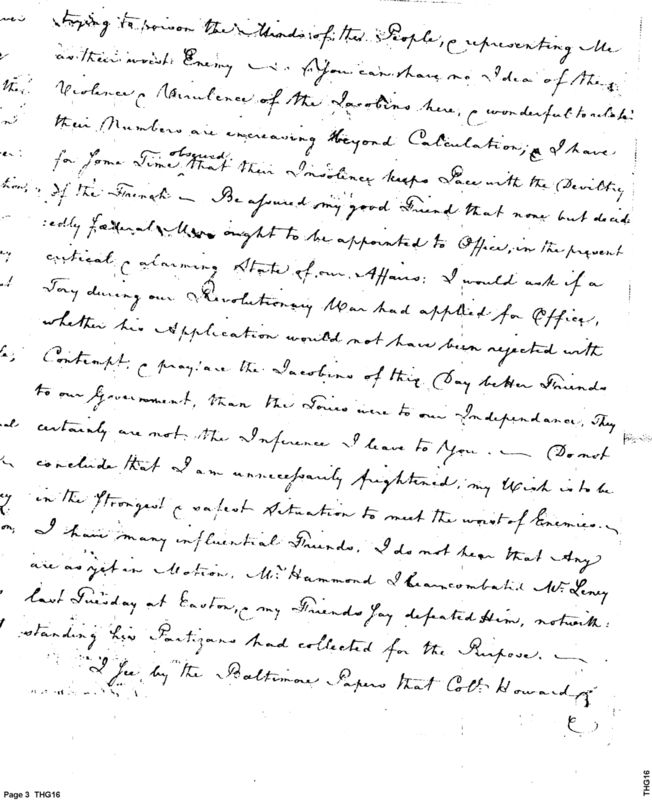 trying to poison the Minds of the People, & representing Me
as their worst Enemy — . You can have no Idea of the
Violence & Virulence of the Jacobins here, & wonderful to relate
their Numbers are encreasing beyond Calculation, & I have
for some Time observed that their Insolence keeps Pace with the Deviltry
of the French — Be assured my good Friend that none but decid
:edly fœderal Men ought to be appointed to Office, in the present
critical & alarming State of our Affairs: I would ask if a
Tory during our Revolutionary War had applied for Office,
whether his Application would not have been rejected with
Contempt, & pray are the Jacobins of this Day better Friends
to our Government, than the Tories were to our Independance. They
certainly are not. the Inference I leave to You. — Do not
conclude that I am unnecessarily frightened, my Wish is to be
in the strongest & safest Situation to meet the worst of Enemies. —
I have many influential Friends, I do not hear that Any
are as yet in Motion. Mr. Hammond I hear combated Mr.
last Tuesday at Easton, & my Friends say defeated Him, notwith:
standing his Partizans had collected for the Purpose. —
I see by the Baltimore Papers that Colo. Howard
Page 3 THG16
THG16